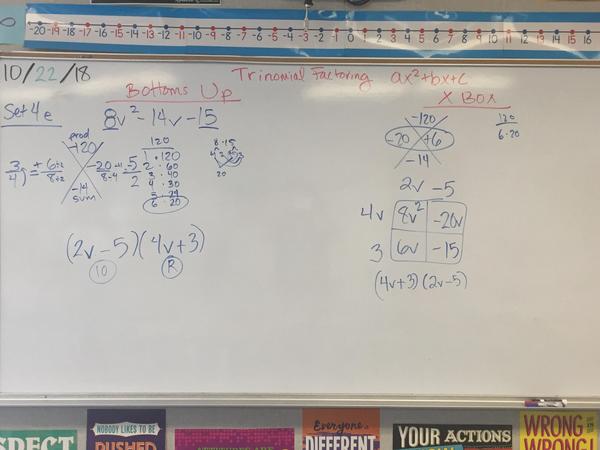 -20 -19 -18 -17 -16 -15 -14 -13 -12 -11 -10 -9 -8 -7 -6 -5 -4 -3 -2 -1 0 1 2 3 4 5 6 7 8 9 10 11 12 13 14 15 16
10/22/18
Trinomial Factoring ax²+bx+c
Bottoms Up
Set 4e
8v² - 14v - 15
prod
-120
3/4 = +6÷2/8÷2
-20÷4/8÷4 = -5/2
-14
sum
120
1·120
2·60
3·40
4·30
5·24
6·20
8·15
20
(2v-5)(4v+3)
10
R
X Box
-120
-20 +6
-14
120
6·20
2v -5
4v 8v² -20v
3 6v -15
(4v+3)(2v-5)
NOBODY LIKES TO BE
Everyone's
DIFFERENT
YOUR ACTIONS
WRONG